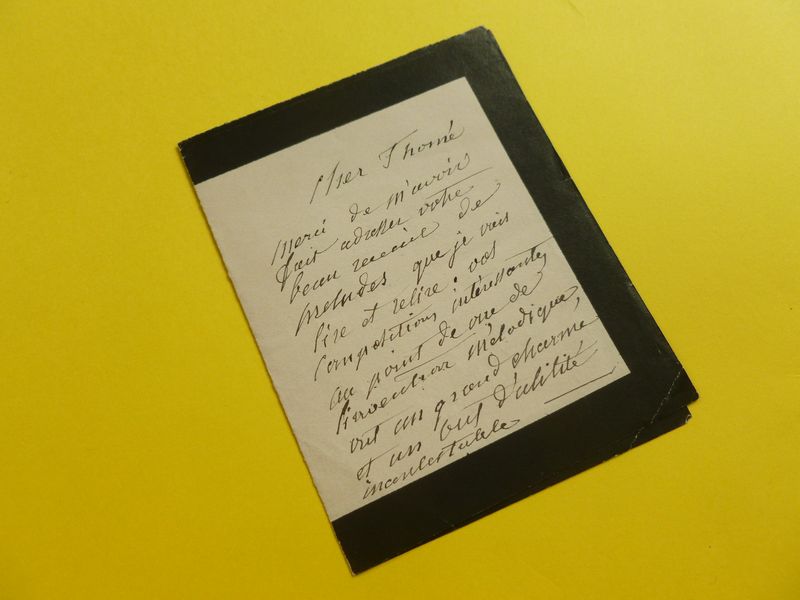 Cher Thomé
Merci de m'avoir
fait adresser votre
beau recueil de
preludes que je vais
lire et relire : vos
compositions intéressantes
au point de vue de
l'invention mélodique,
ont un grand charme
et un but d'utilité
incontestable